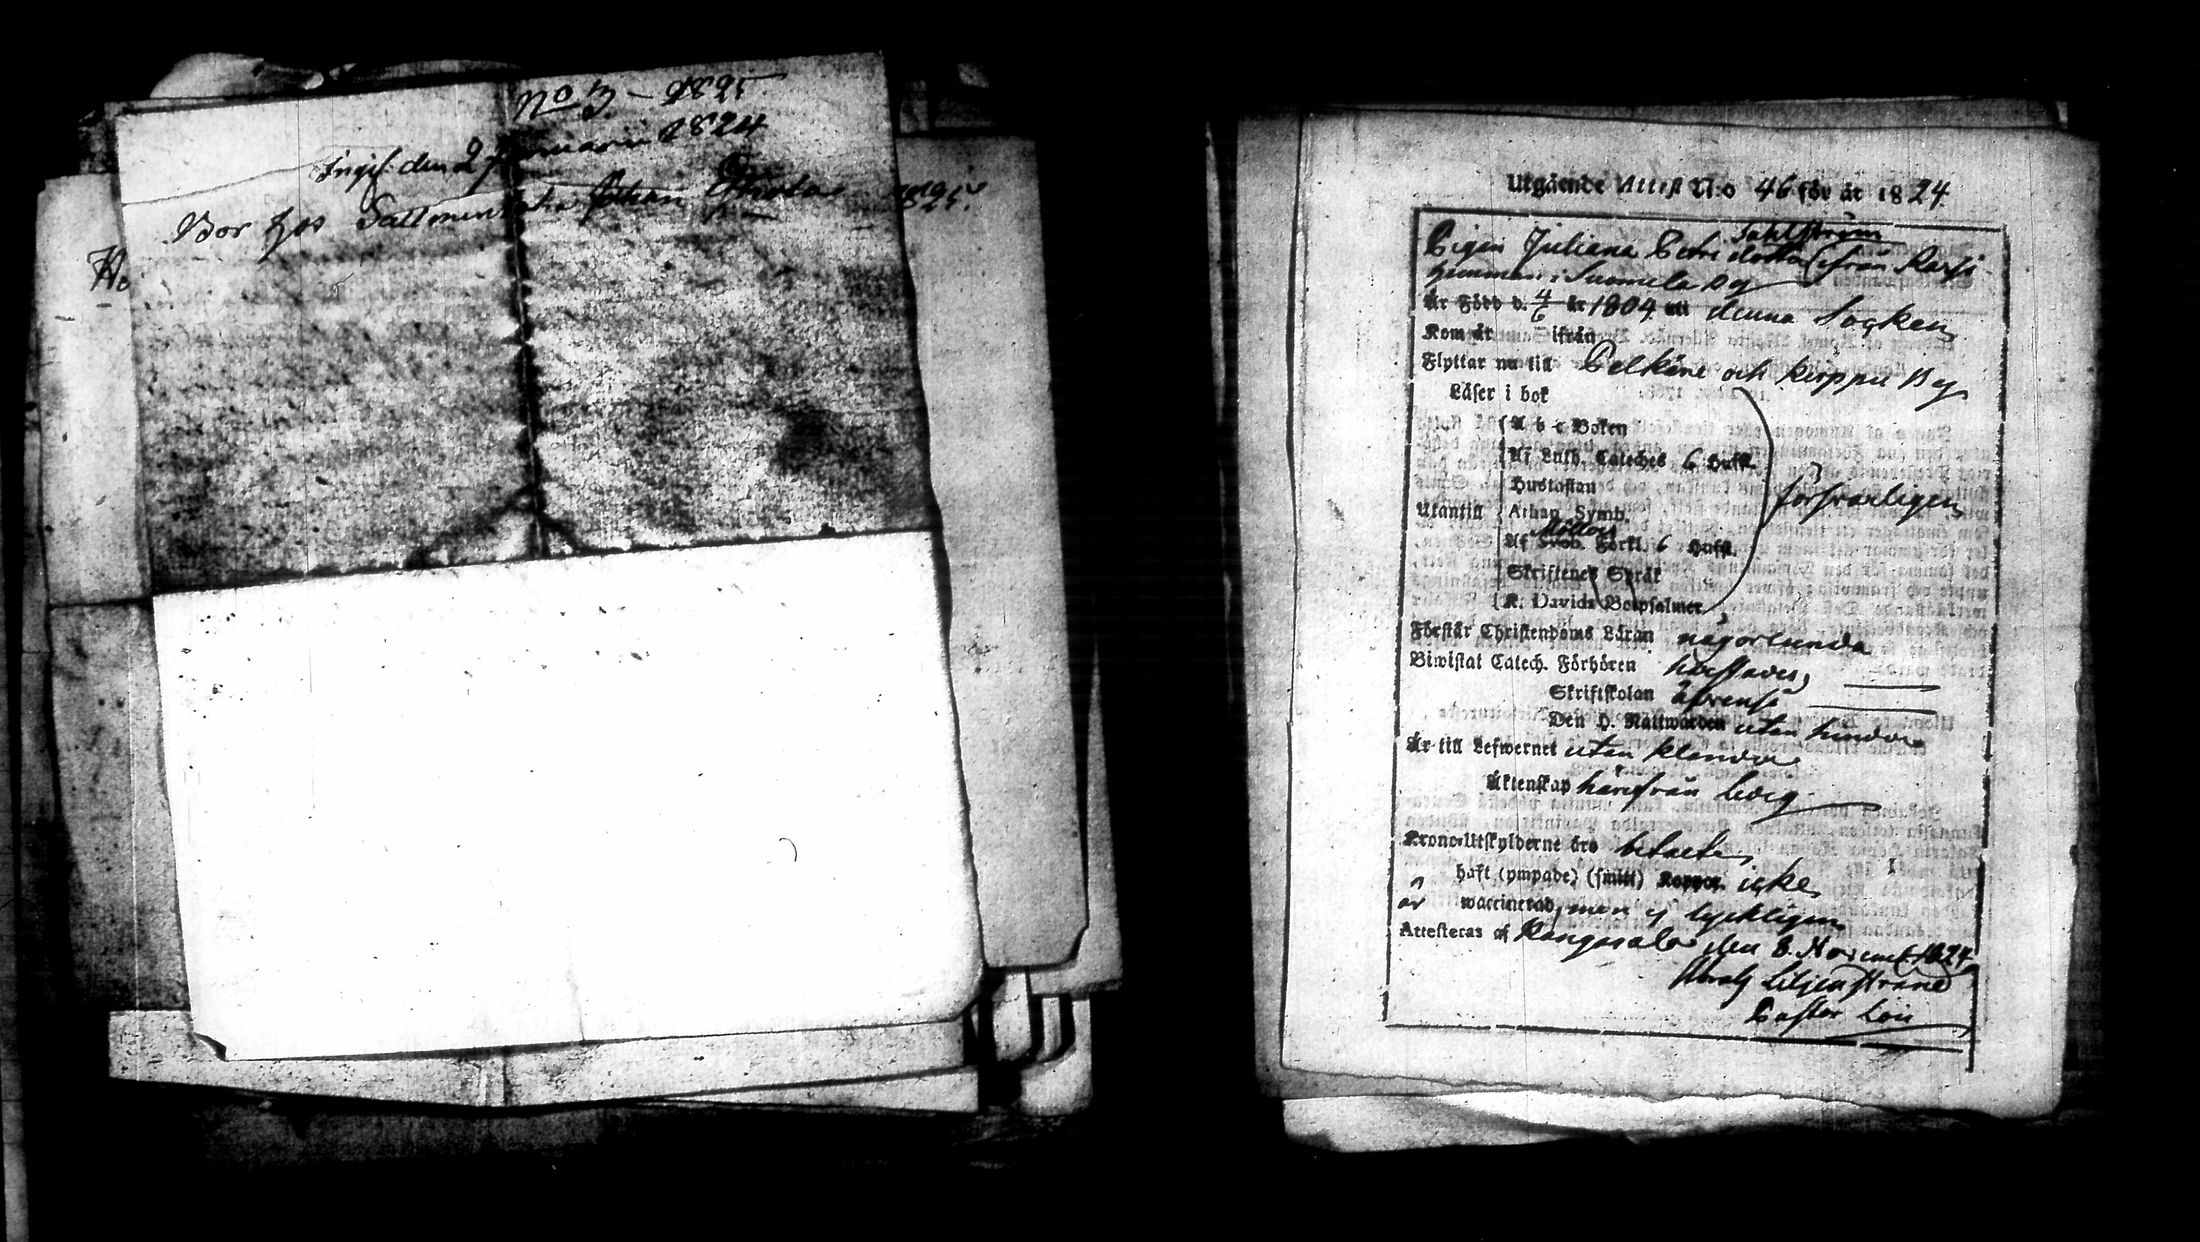 No 3. – 1825.
Ingif. den 2 Januarii 1824
Bor hos Sattmun Johan 1825.
Utgående Attest N:o 46 för år 1824
Sahlström
Pigan Juliana Petri dotter ifrån Karsi
hemman i Suomela By
Är Född d. 4/6 år 1804 uti denna Socken
Kom år ifrån
Flyttar nu till Pelkäne och Kirppu By
Läser i bok
A b c Boken
Af Luth. Cateches 6 Hufst.
Hustaflan
försvarligen
Utantill Athan. Symb.
Möllers
Af Sveb. Förkl. 6 Hufst.
Skriftenes Språk
K. Davids Botpsalmer
Förstår Christendoms Läran någorlunda
Biwistat Catech. Förhören
Skriftskolan äfvenså
Den H. Nattwarden utan hinder
Är till Lefwernet utan klander
Äktenskap härifrån ledig
Krono-Utskylderne äro betalte
haft (ympade) (smitt) Koppor icke
är waccinerad, men ej lyckligen
Attesteras af Kangasala den 8. Novemb. 1824
Liljenstrand
Pastor Loci